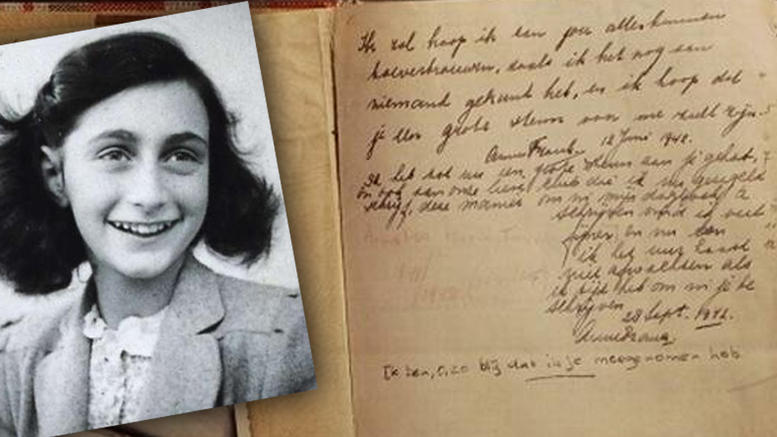 Ik zal hoop ik aan jou alles kunnen
toevertrouwen, zoals ik het nog aan
niemand gekund heb, en ik hoop dat
je een grote steun voor me zult zijn.
Anne Frank. 12 Juni 1942.
Ik heb tot nu een grote steun aan je gehad,
en ook aan onze lieve club die ik nu geregeld
schrijf, deze manier om in mijn dagboek te
schrijven vind ik veel
fijner en nu kan
ik het uur haast
niet afwachten als
ik tijd heb om in je te
schrijven.
28 Sept. 1942.
Anne Frank
Ik ben, o, zo blij dat ik je meegenomen heb